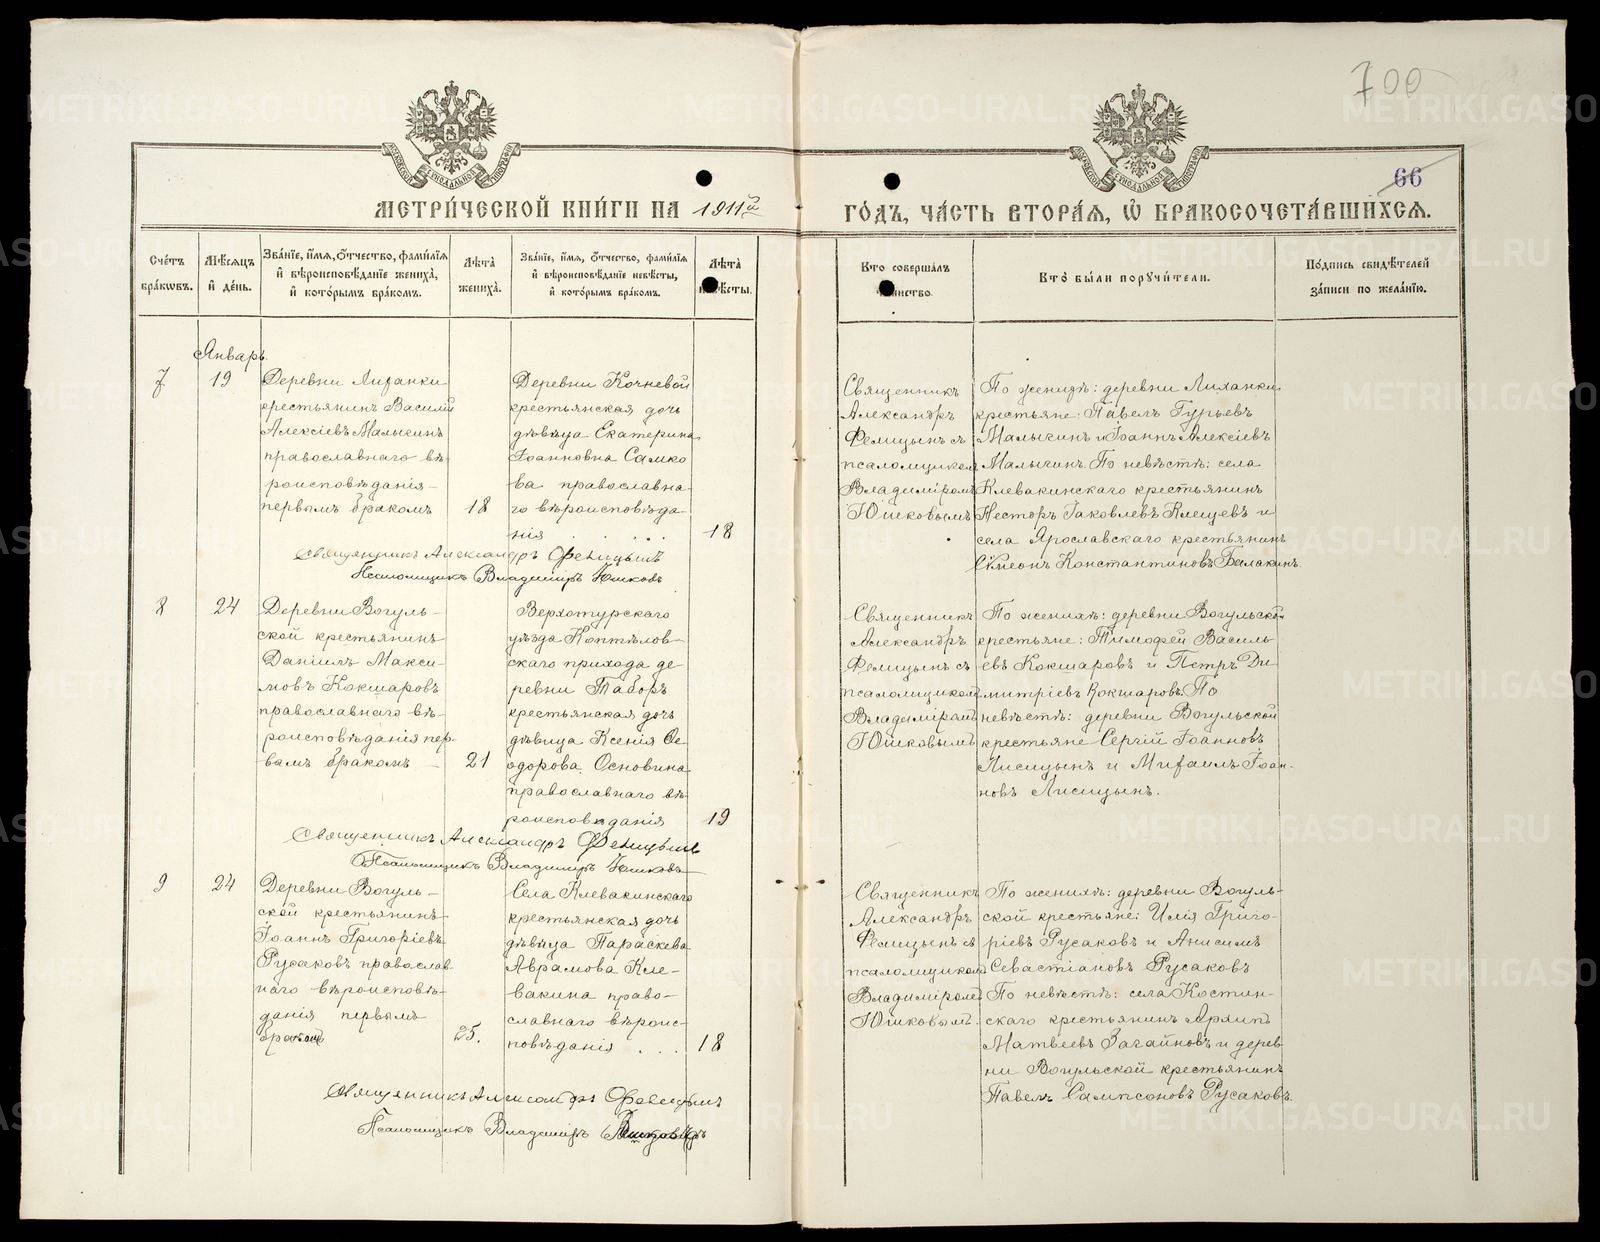 700
66
МЕТРИ́ЧЕСКОЙ КНИ́ГИ НА 1911й ГО́ДЪ, ЧА́СТЬ ВТОРА́Я, Ѡ БРАКОСОЧЕТА́ВШИХСЯ.
Сче́тъ бра́кѡвъ.
Мѣ́сяцъ и҆ де́нь.
Зва́нїе, и҆́мя, ѻ҆́тчество, фами́лїя
и҆ вѣроисповѣ́данїе жениха̀,
и҆ кото́рымъ бра́комъ.
Лѣ́та жениха̀.
Зва́нїе, и҆́мя, ѻ҆́тчество, фами́лїя
и҆ вѣроисповѣ́данїе невѣ́сты,
и҆ кото́рымъ бра́комъ.
Лѣ́та невѣ́сты.
Кто̀ соверша́лъ
та́инство.
Кто̀ бы́ли порꙋчи́тели.
По́дпись свидѣ́телей
за́писи по жела́нїю.
Январь.
7
19
Деревни Лиханки
крестьянинъ Василій
Алексіевъ Малыгинъ
православнаго вѣ-
роисповѣданія
первымъ бракомъ
18
Деревни Кочневой
крестьянская дочь
дѣвица Екатерина
Іоанновна Самко
ва православна-
го вѣроисповѣда-
нія
18
Священникъ
Александръ
Фелицынъ съ
псаломщикомъ
Владиміромъ
Юшковымъ
По женихѣ: деревни Лиханки
крестьяне: Павелъ Гурьевъ
Малыгинъ и Іоаннъ Алексіевъ
Малыгинъ. По невѣстѣ: села
Клевакинскаго крестьянинъ
Несторъ Іаковлевъ Клещевъ и
села Ярославскаго крестьянинъ
Симеонъ Константиновъ Балакинъ.
Священникъ Александръ Фелицынъ
Псаломщикъ Владиміръ Юшковъ
8
24
Деревни Вогуль-
ской крестьянинъ
Даніилъ Макси-
мовъ Кокшаровъ
православнаго вѣ-
роисповѣданія пер-
вымъ бракомъ
21
Верхотурскаго
уѣзда Коптѣлов-
скаго прихода де-
ревни Таборъ
крестьянская дочь
дѣвица Ксенія Ѳе-
одорова Основина
православнаго вѣ-
роисповѣданія
19
Священникъ
Александръ
Фелицынъ съ
псаломщикомъ
Владиміромъ
Юшковымъ
По женихѣ: деревни Вогульской
крестьяне: Тимофей Василь
евъ Кокшаровъ и Петръ Ди
митріевъ Кокшаровъ. По
невѣстѣ: деревни Вогульской
крестьяне Сергій Іоанновъ
Лисицынъ и Михаилъ Іоан-
новъ Лисицынъ.
Священникъ Александръ Фелицынъ
Псаломщикъ Владиміръ Юшковъ
9
24
Деревни Вогуль-
ской крестьянинъ
Іоаннъ Григоріевъ
Русаковъ православ-
наго вѣроисповѣ-
данія первымъ
бракомъ
25.
Села Клевакинскаго
крестьянская дочь
дѣвица Параскева
Аврамова Кле-
вакина право-
славнаго вѣроис-
повѣданія . . .
18
Священникъ
Александръ
Фелицынъ съ
псаломщикомъ
Владиміромъ
Юшковымъ.
По женихѣ: деревни Вогуль-
ской крестьяне: Илія Григо-
ріевъ Русаковъ и Анисимъ
Севастіановъ Русаковъ
По невѣстѣ: села Костин-
скаго крестьянинъ Архипъ
Матвеевъ Загайновъ и дерев-
ни Вогульской крестьянинъ
Павелъ Сампсоновъ Русаковъ.
Священникъ Александръ Фелицынъ
Псаломщикъ Владиміръ Юшковъ
METRIKI.GASO-URAL.RU